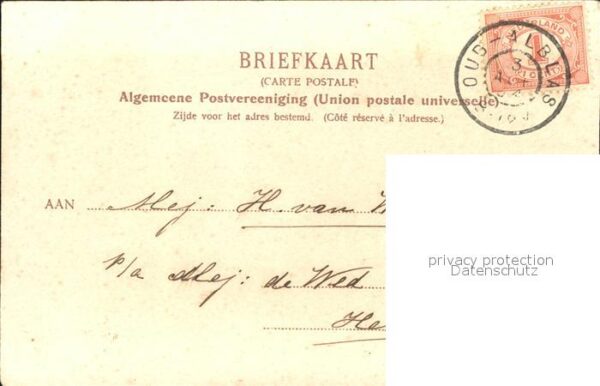 BRIEFKAART
(CARTE POSTALE)
Algemeene Postvereeniging (Union postale universelle)
Zijde voor het adres bestemd. (Côté réservé à l'adresse.)
OUD-ALBLAS
3
1
AAN Mej: H. van
p/a Mej: de Wed
privacy protection
Datenschutz